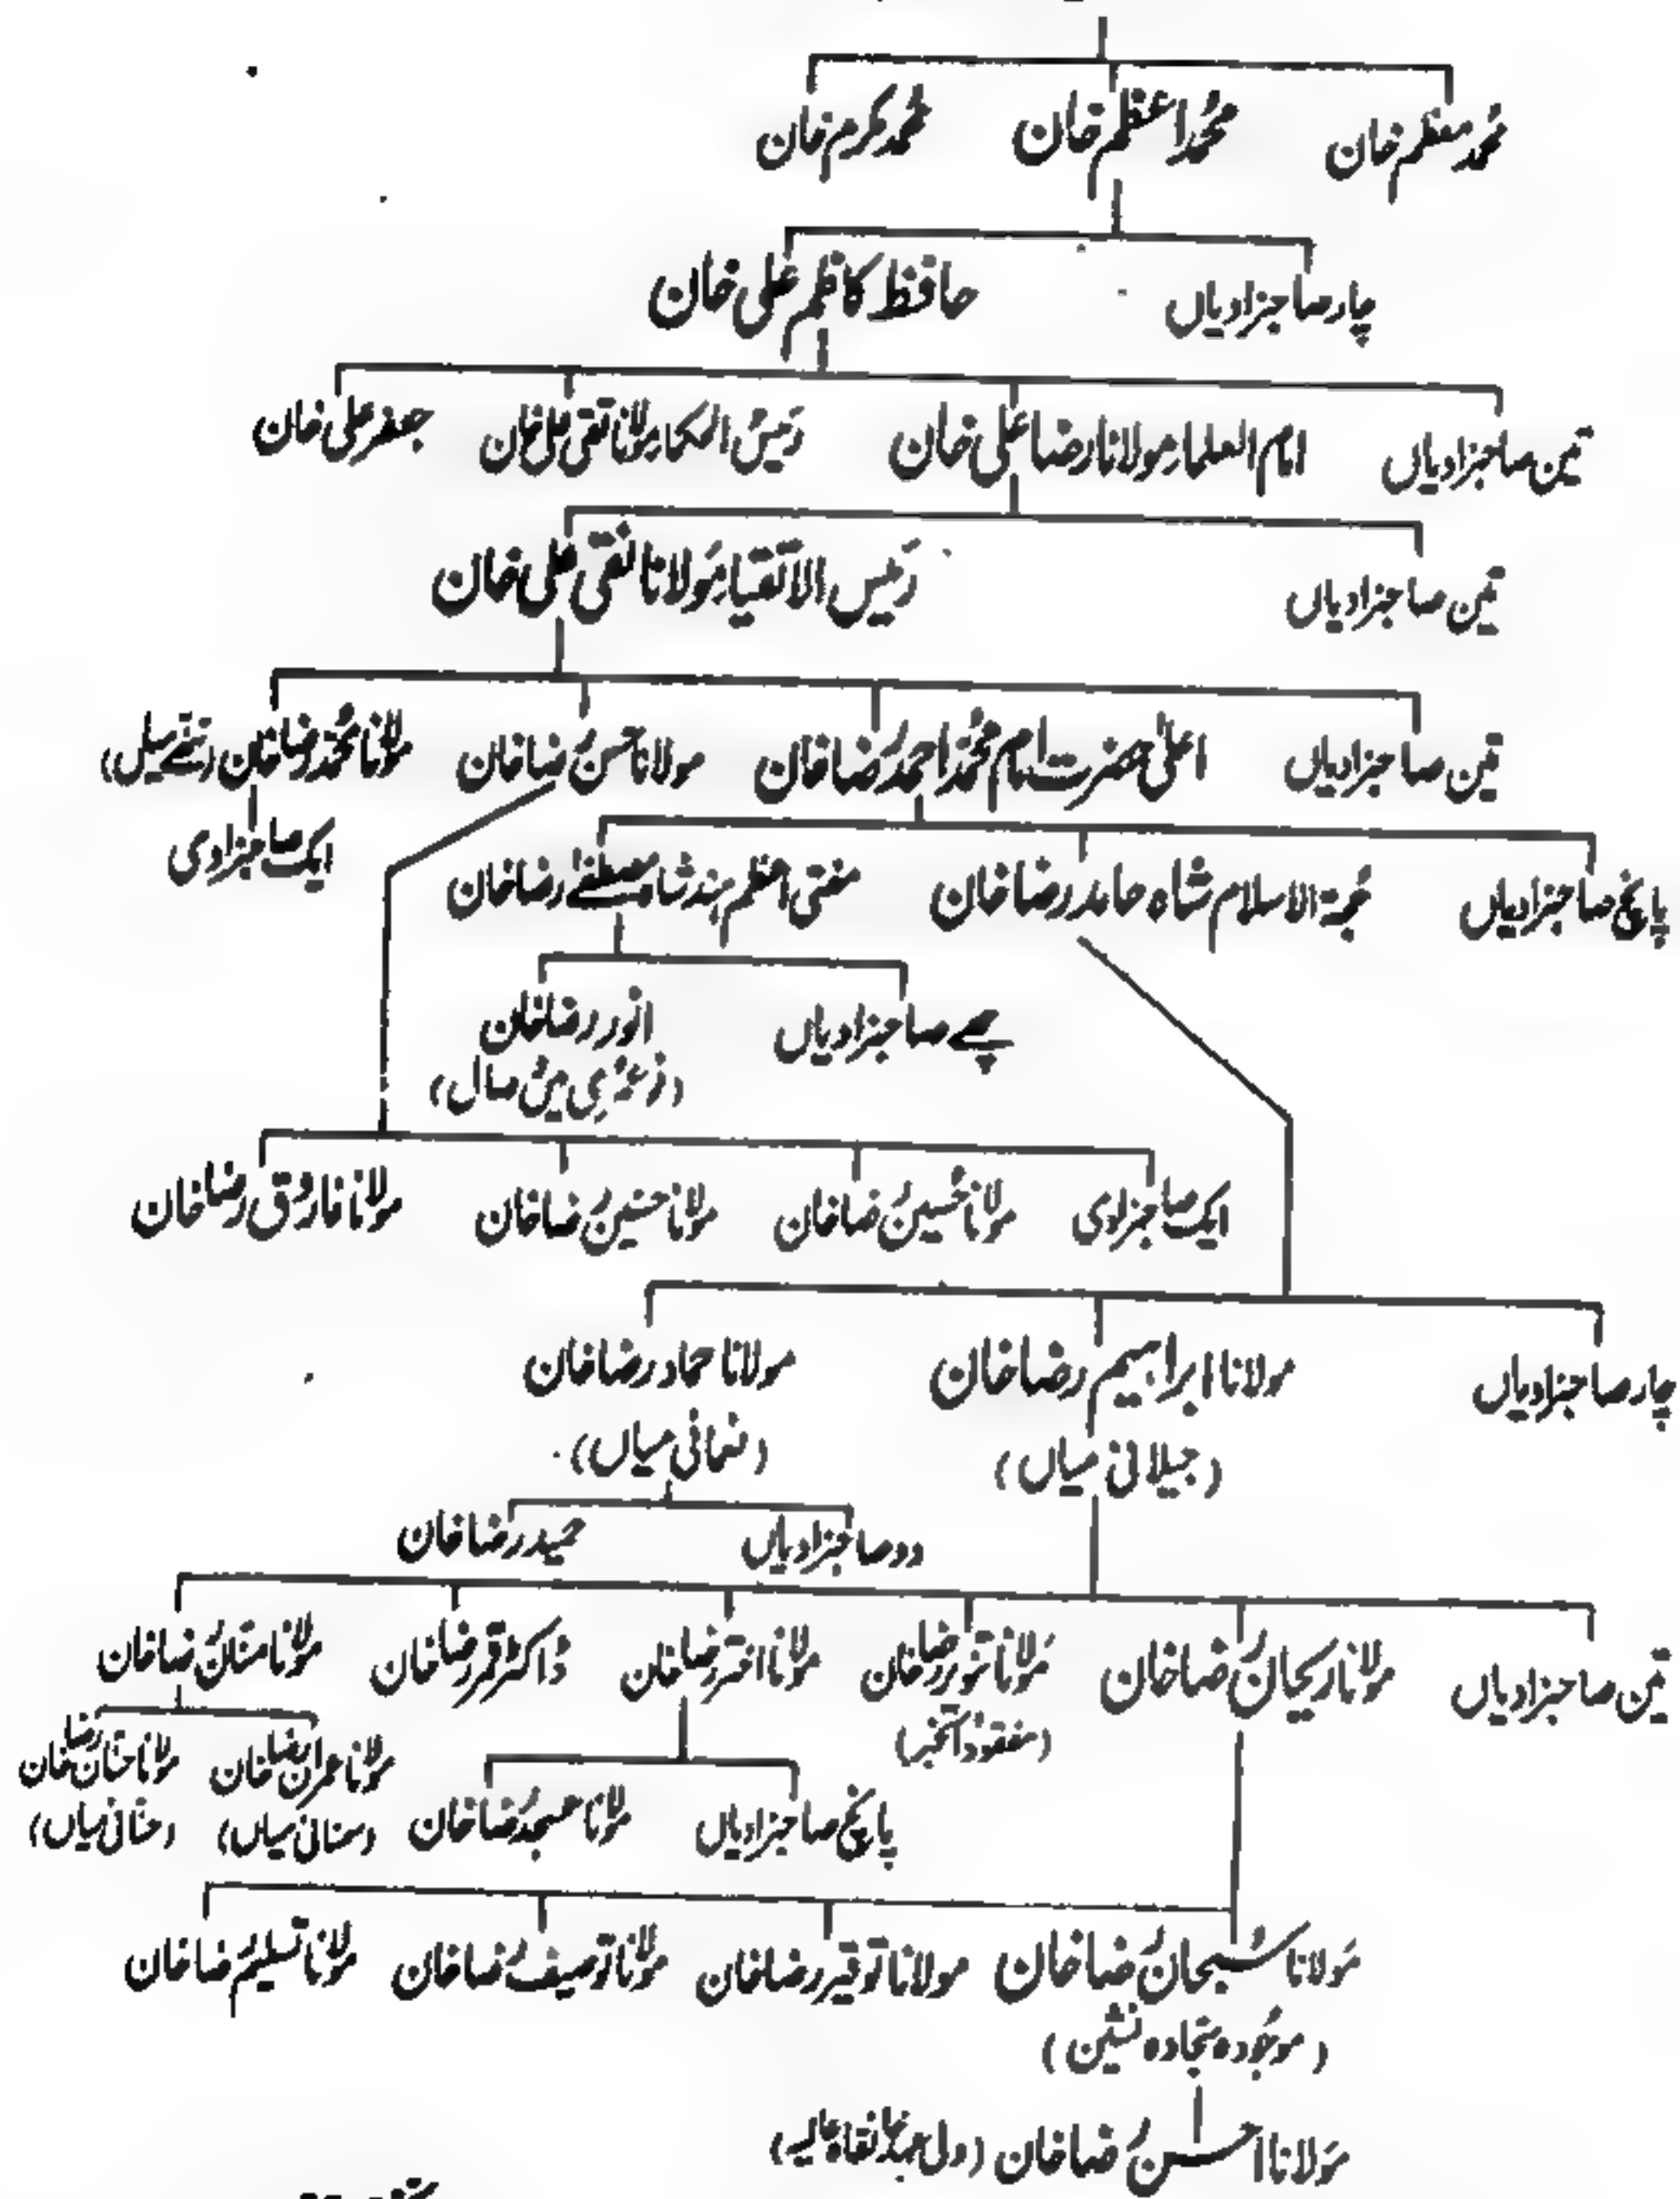 محمد معظم خان   محمد اعظم خان   محمد مکرم خان
چار صاحبزادیاں   حافظ کاظم علی خان
تین صاحبزادیاں   امام العلماء مولانا رضا علی خان   رئیس الحکماء مولانا تقی علی خان   جعفر علی خان
تین صاحبزادیاں   رئیس الاتقیاء مولانا نقی علی خان
تین صاحبزادیاں   اعلیٰ حضرت امام محمد احمد رضا خان   مولانا حسن رضا خان   مولانا محمد رضا خان (ننھے میاں)
ایک صاحبزادی
پانچ صاحبزادیاں   حجۃ الاسلام شاہ حامد رضا خان   مفتی اعظم ہند شاہ مصطفےٰ رضا خان
چھے صاحبزادیاں   انور رضا خان
ایک صاحبزادی   مولانا حسین رضا خان   مولانا حسنین رضا خان   مولانا فاروق رضا خان
چار صاحبزادیاں   مولانا ابراہیم رضا خان   مولانا حماد رضا خان
(جیلانی میاں)   (نعمانی میاں)
دو صاحبزادیاں   حمید رضا خان
تین صاحبزادیاں   مولانا ریحان رضا خان   مولانا تنویر رضا خان   مولانا اختر رضا خان   ڈاکٹر قمر رضا خان   مولانا منان رضا خان
(مفقود الخبر)
مولانا عمران رضا خان   مولانا حنان رضا خان
پانچ صاحبزادیاں   مولانا عسجد رضا خان   (سمنانی میاں)   (حنانی میاں)
مولانا سبحان رضا خان   مولانا توقیر رضا خان   مولانا توصیف رضا خان   مولانا تسلیم رضا خان
(موجودہ سجادہ نشین)
مولانا احسن رضا خان (ولی عہد خانقاہ عالیہ)